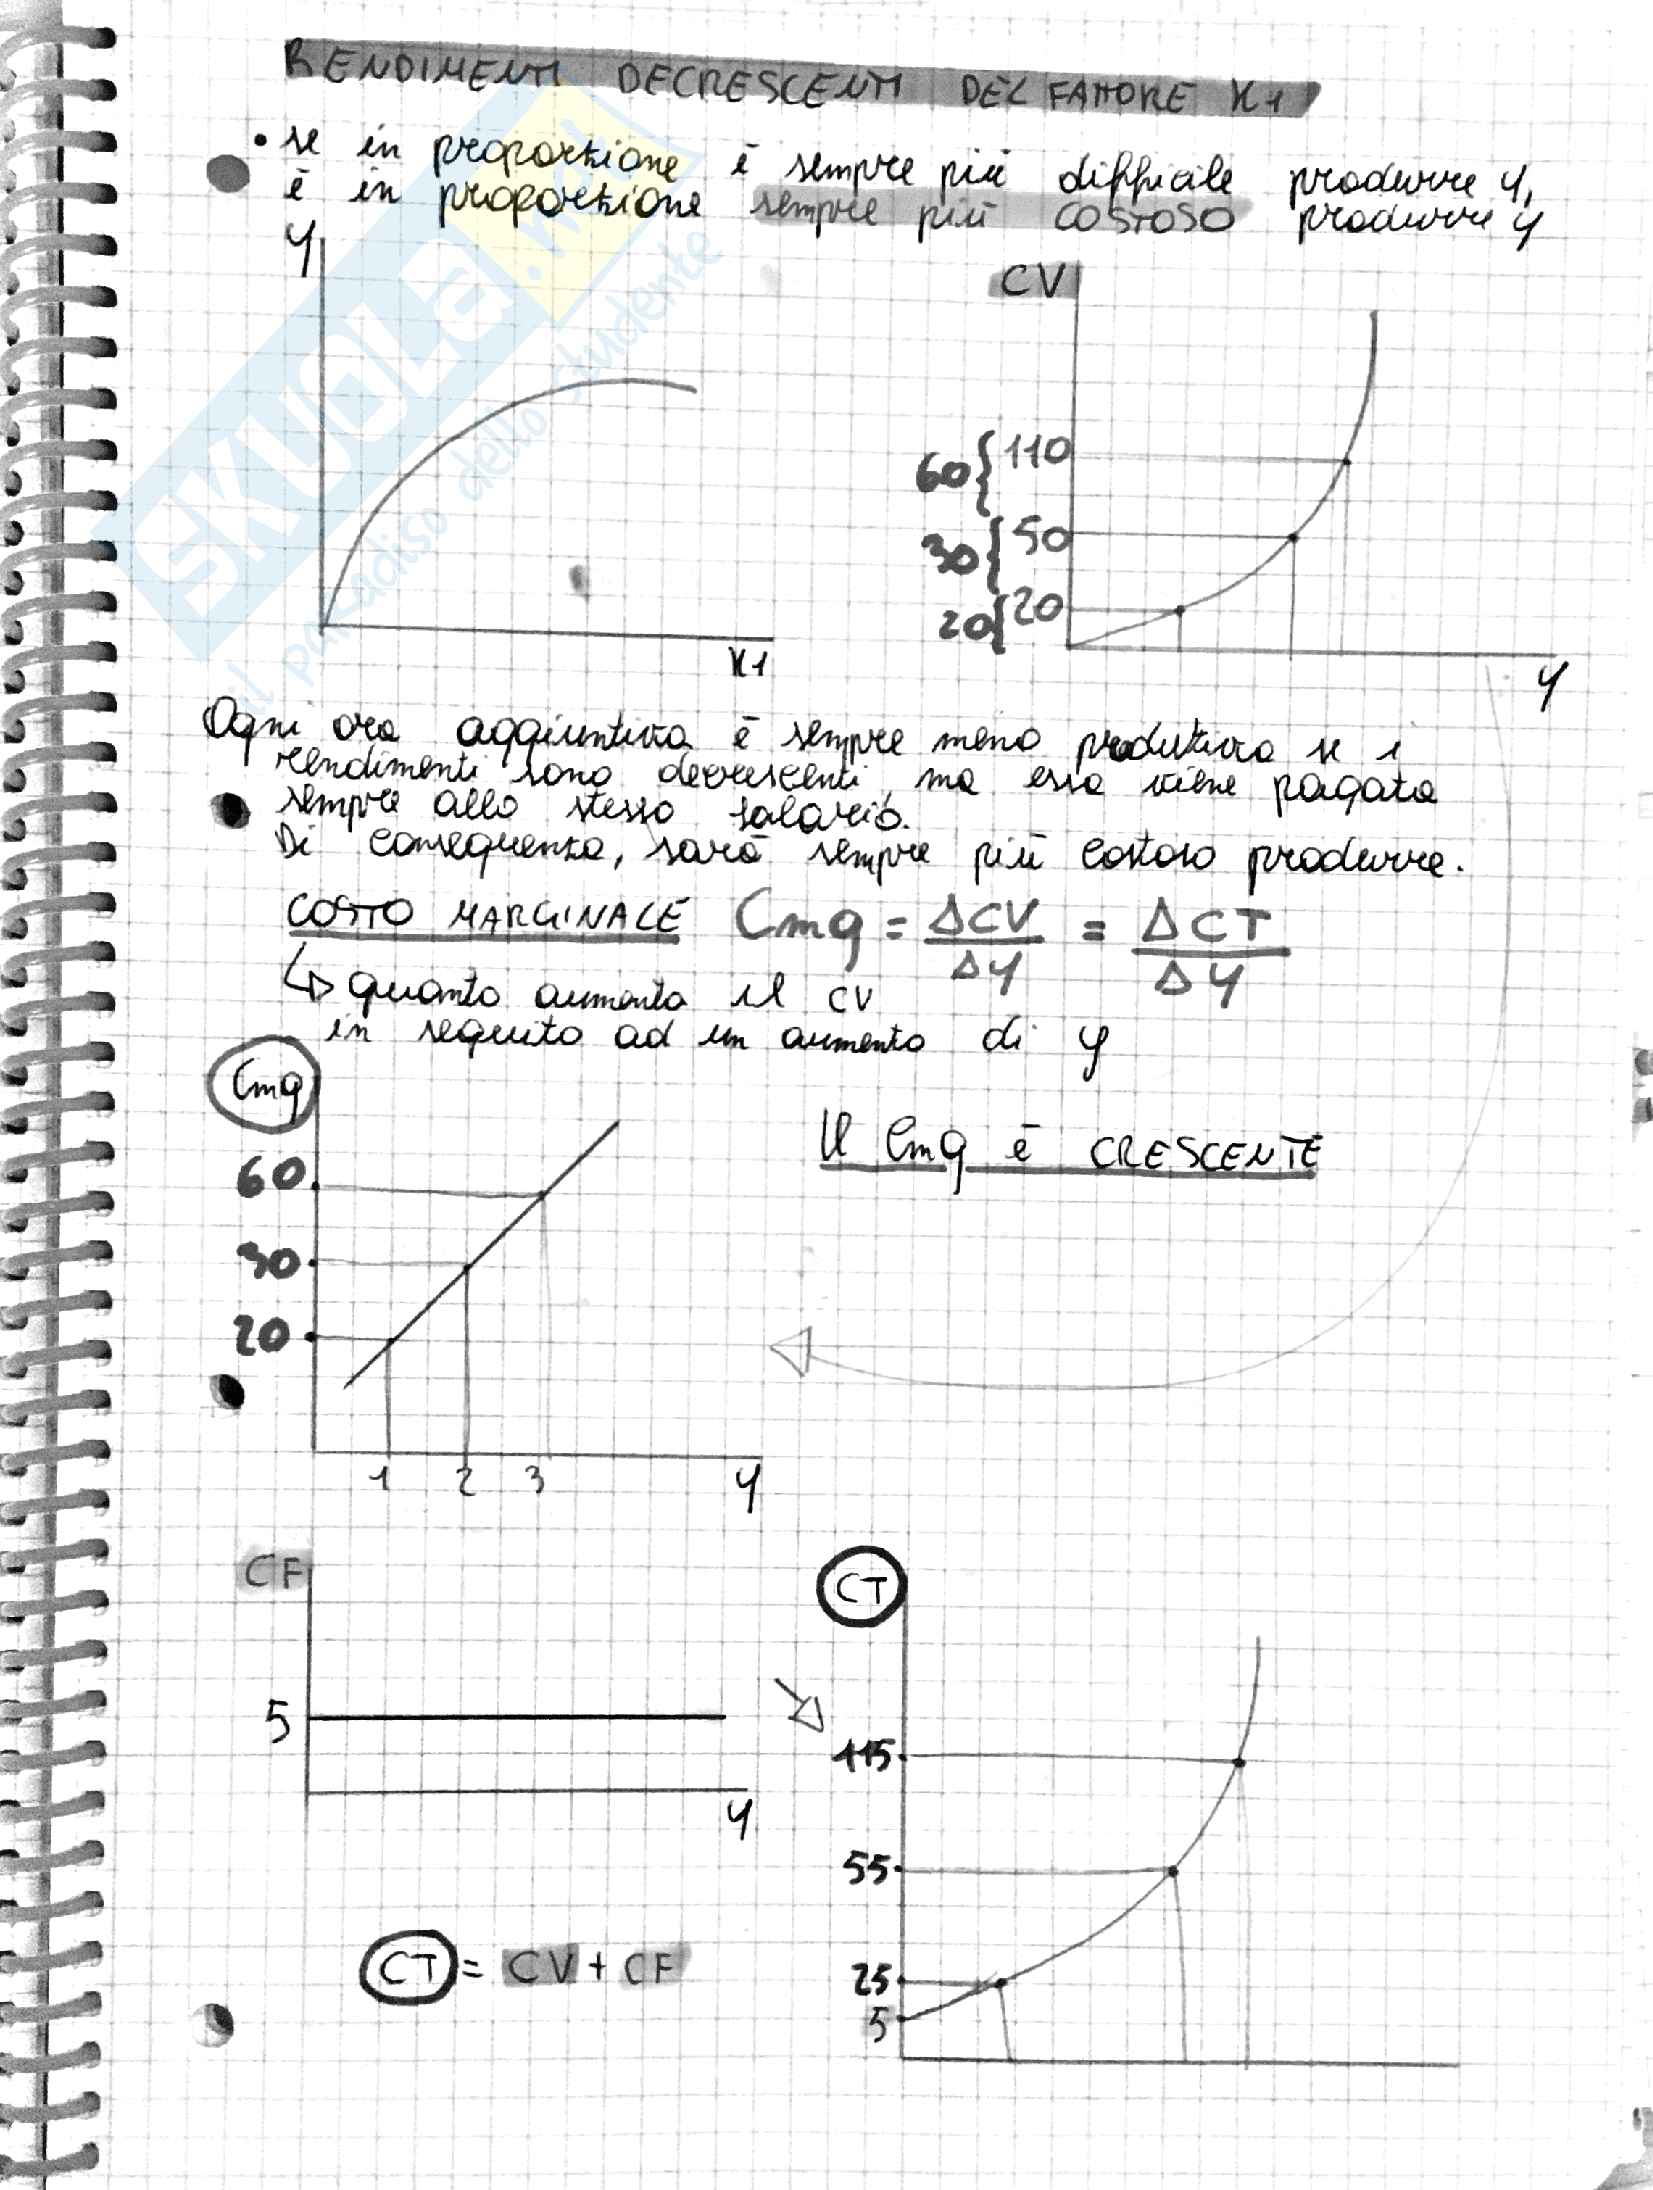 RENDIMENTI DECRESCENTI DEL FATTORE X1
• se in proporzione è sempre più difficile produrre y,
è in proporzione sempre più COSTOSO produrre y
y
CV
60 { 110
30 { 50
20 { 20
x1
y
Ogni ora aggiuntiva è sempre meno produttiva se i
rendimenti sono decrescenti, ma essa viene pagata
sempre allo stesso salario.
Di conseguenza, sarà sempre più costoso produrre.
COSTO MARGINALE Cmg = ΔCV/Δy = ΔCT/Δy
↳ quanto aumenta il CV
in seguito ad un aumento di y
Cmg
Il Cmg è CRESCENTE
60
30
20
1 2 3 y
CF
CT
5
115
y
55
CT = CV + CF
25
5
SKUOLA.net
il paradiso dello studente